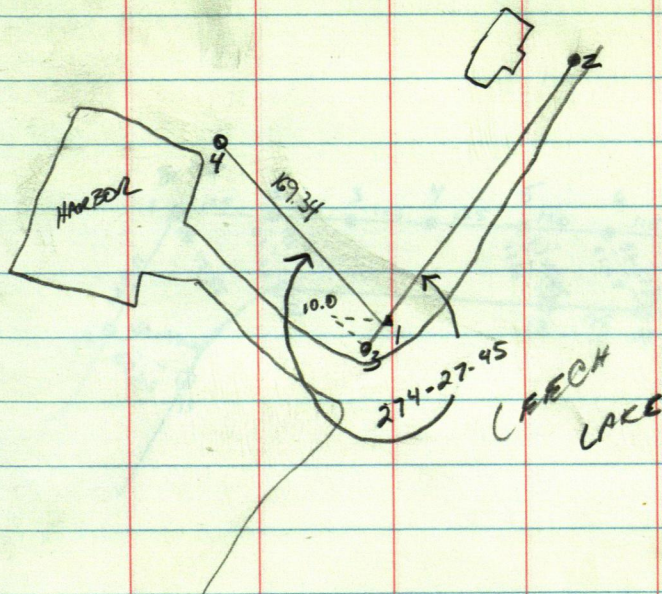 2
4
HARBOR
169.34
10.0
1
3
274-27-45
LEECH
LAKE